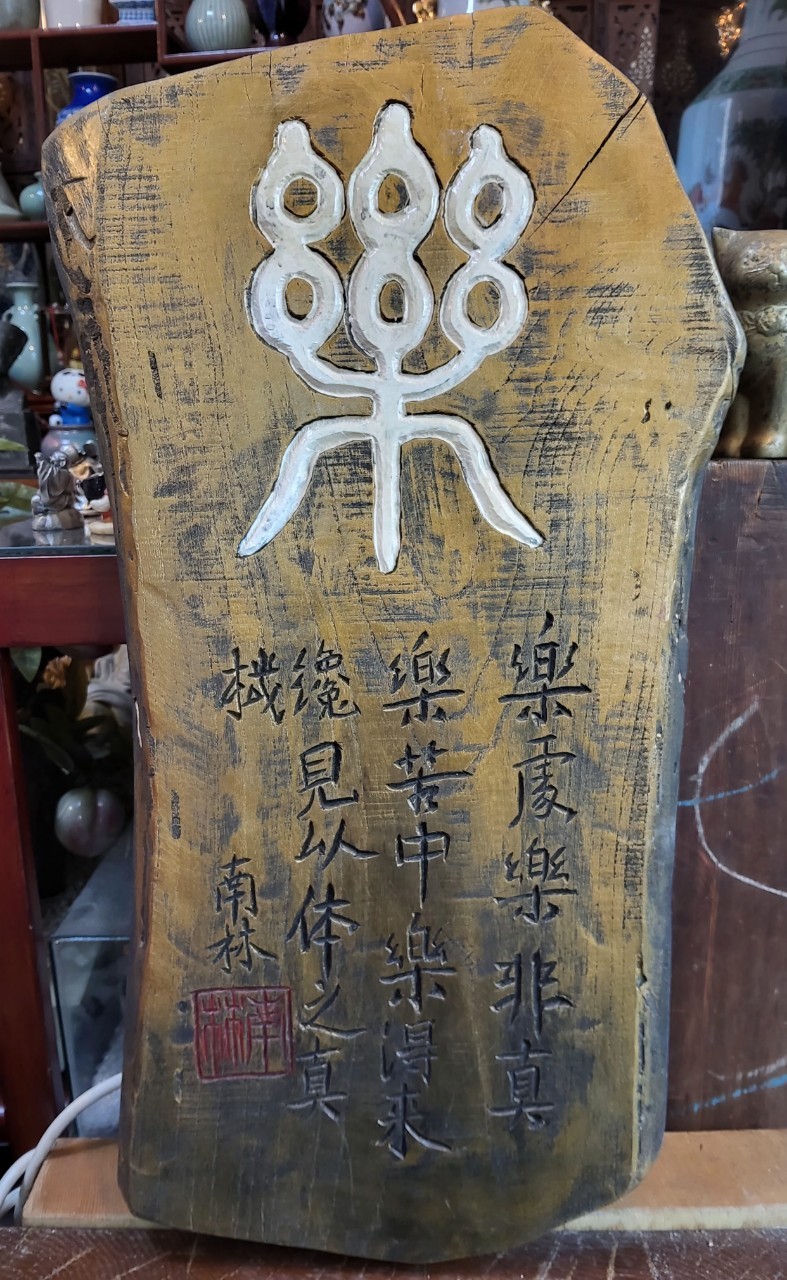 樂
樂處樂非真
樂苦中樂得來
纔見以体之真
機
南林
南林